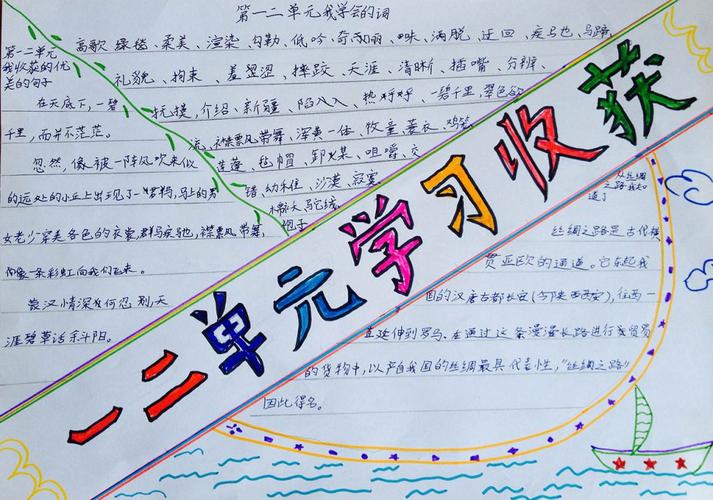 第一二单元我学会的词
高歌、绿毯、柔美、渲染、勾勒、低吟、奇丽、襟、洒脱、迂回、疾马也、马蹄
礼貌、拘束、羞涩、摔跤、天涯、清晰、插嘴、分辨、
抚摸、介绍、新疆、陷入、热 好、一碧千里、翠色欲
流、襟飘带舞、浑 一体、牧童、蓑衣、鸡
莲蓬、毡帽、卸 、咀嚼、交
错、幼稚、沙漠、寂寞、
天、驼绒、
袍子
第一二单元
我收获的优
美的句子
在天底下，一碧
千里，而并不茫茫。
忽然，像被一阵风吹来似
的远处的小丘上出现了一群马，马上的男
女老少穿着各色的衣裳，群马疾驰，襟飘带舞，
像一条彩虹向我们飞来。
蒙汉情深何忍别，天
涯碧草话斜阳。
一二单元学习收获
从丝绸
之路我知
道了
丝绸之路是古代横
贯亚欧的通道。它东起我
国的汉唐古都长安(今陕西西安)，往西一
直延伸到罗马。在通过这条漫漫长路进行贸易
的货物中，以产自我国的丝绸最具代表性，“丝绸之路”
因此得名。